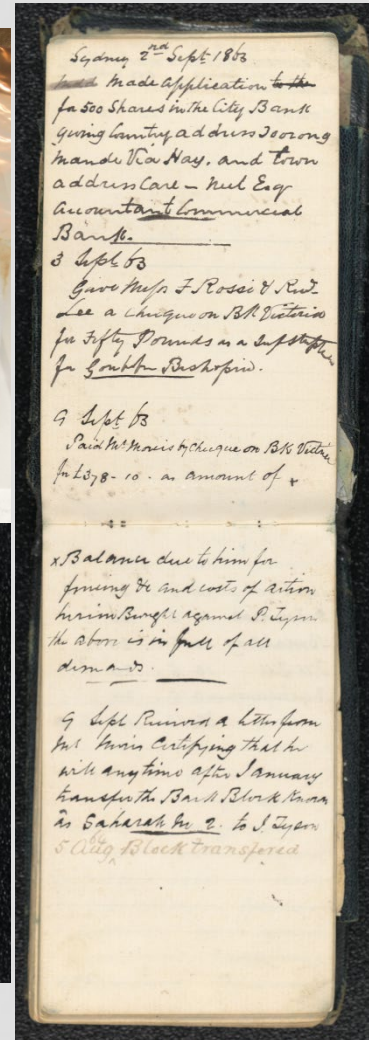 Sydney 2nd Sept 1863
made application to the
for 500 Shares in the City Bank
giving Country address Toorong
mande Via Hay. and town
address Care – Neil Esq
Accountant Commercial
Bank.
3 Sept 63
Give Messrs F Rossi & Revd
Lee a cheque on BK Victoria
for Fifty Pounds as a
for Goulbn Bishopric.
9 Sept 63
Paid Mr Morris by Cheque on BK Victoria
for £378-10- as amount of x
x Balance due to him for
fencing &c and costs of action
herein Bought against P. Tyson
the above is in full of all
demands.
9 Sept Received a letter from
Mr Morris Certifying that he
will any time after January
transfer the Back Block Known
as Saharah No 2. to J. Tyson
5 Aug 64 Block transfered